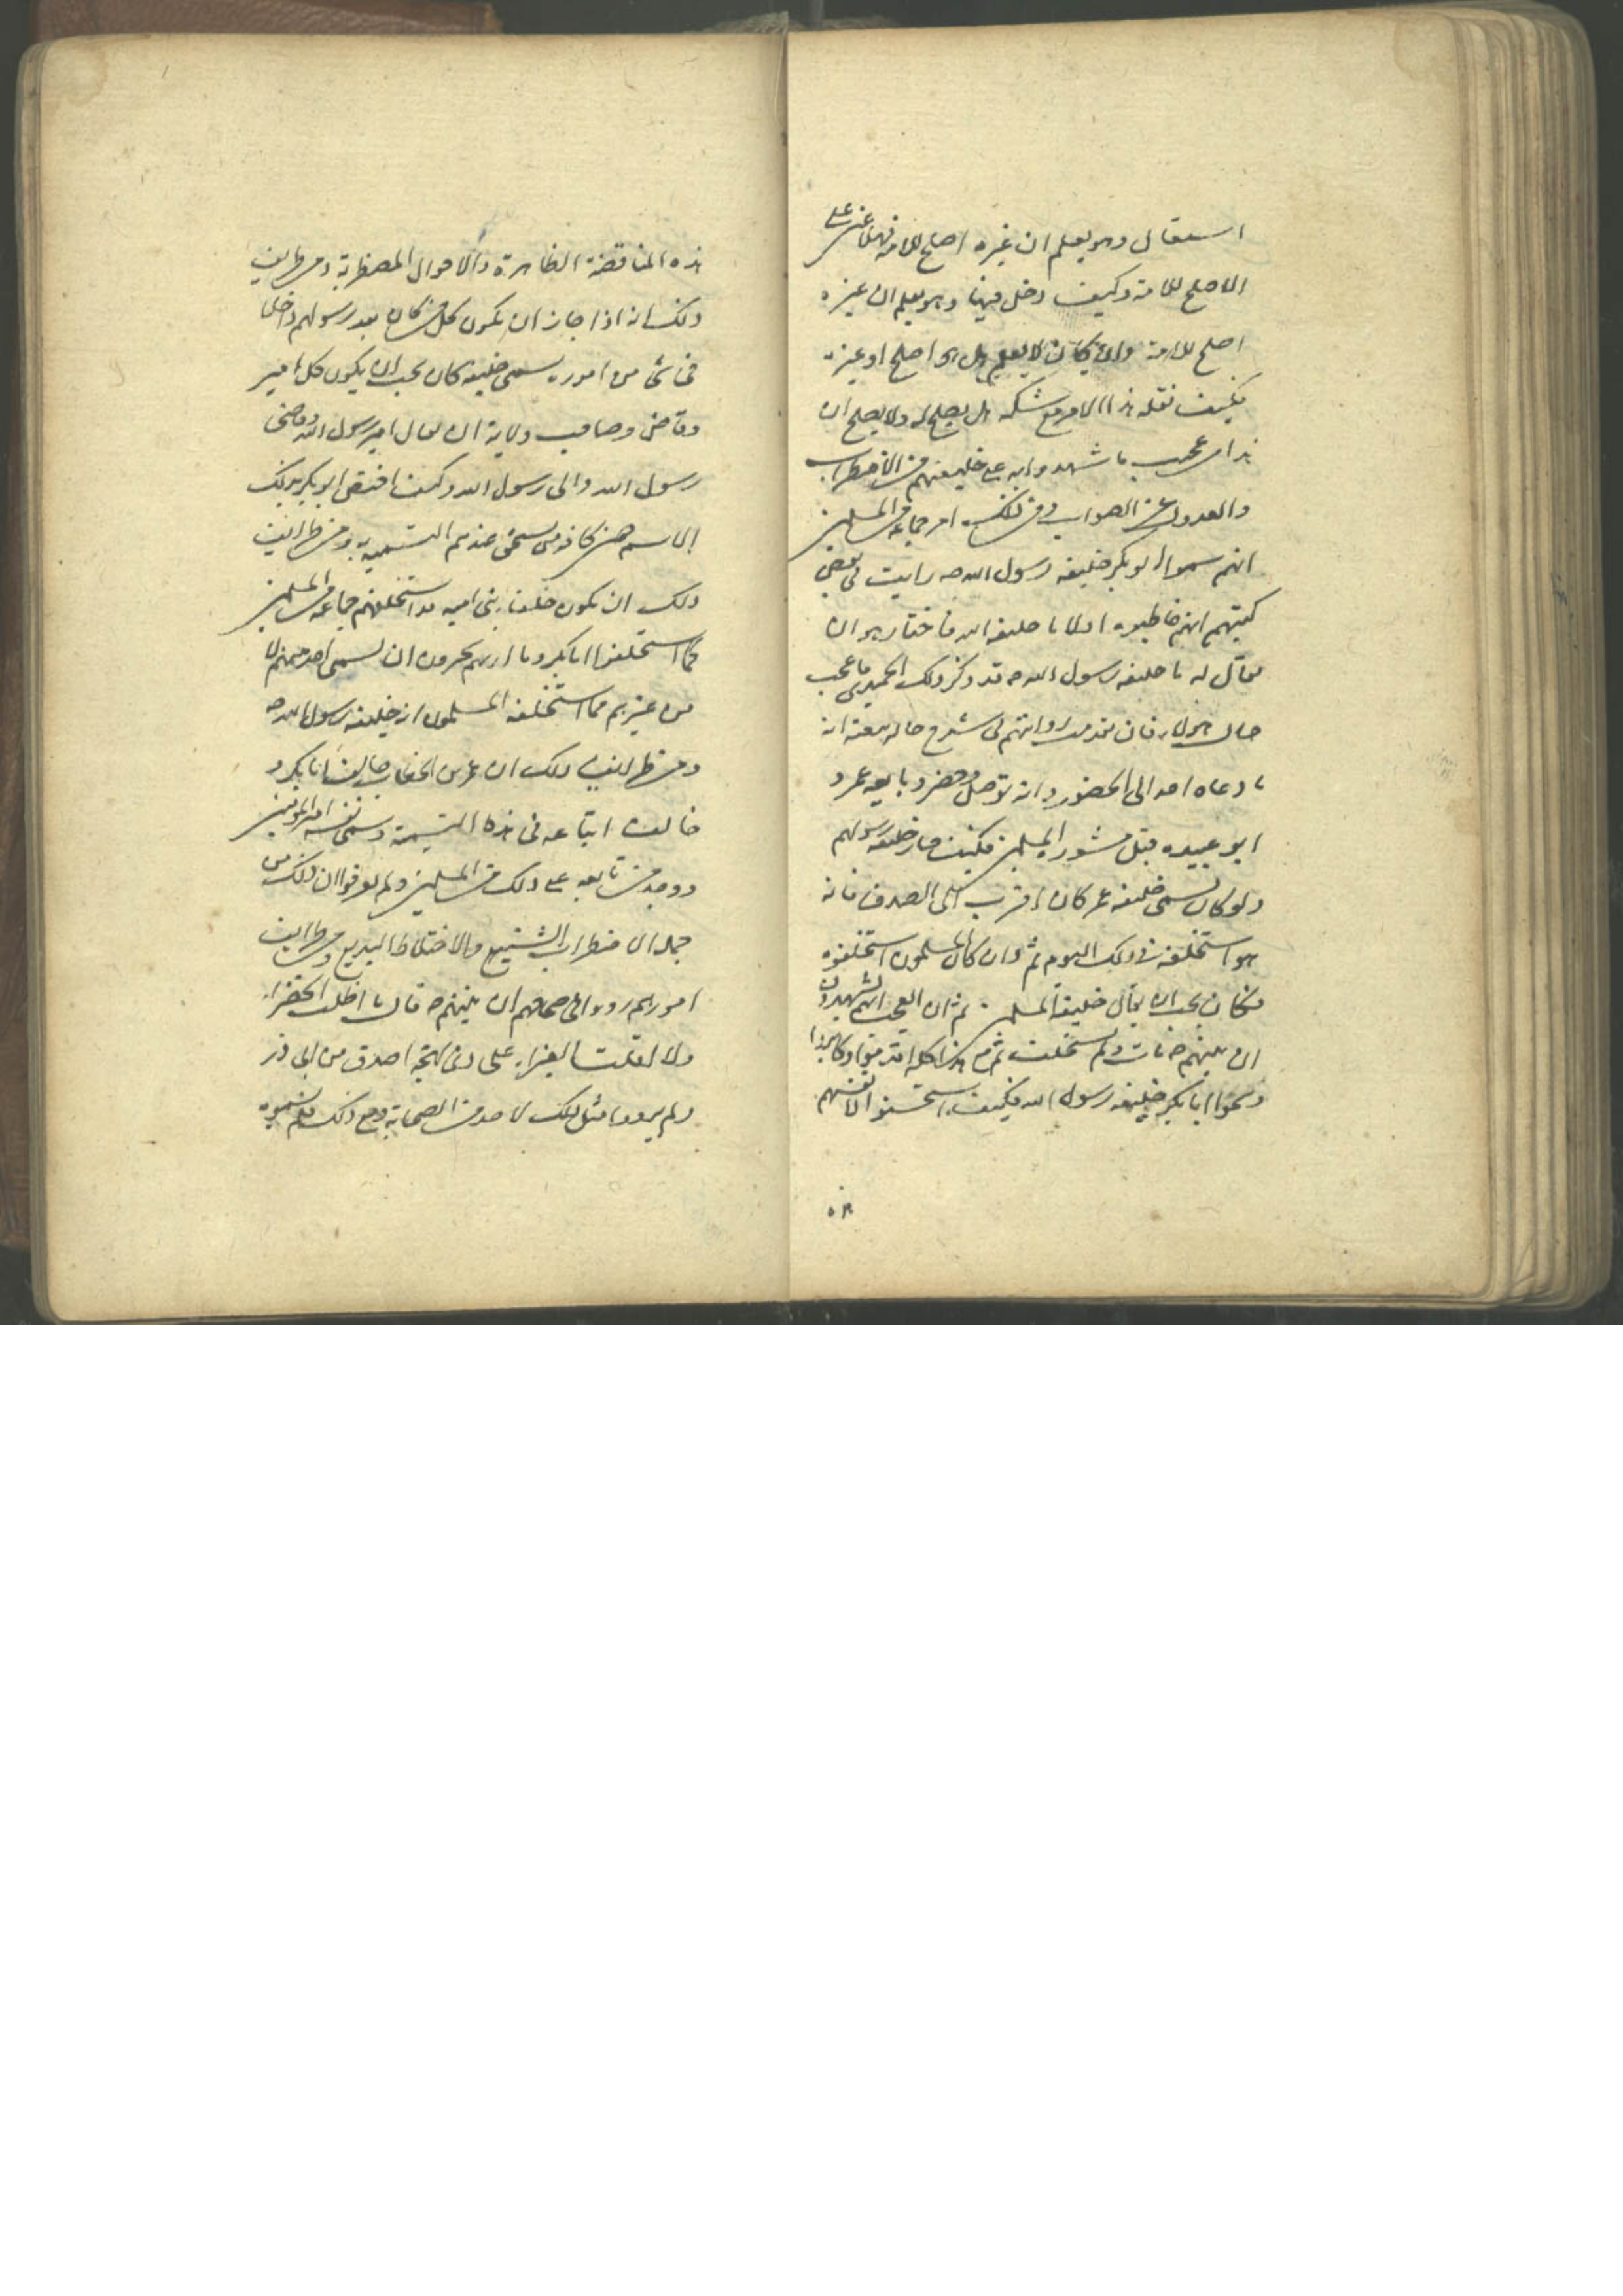 استقال وهو يعلم ان غيره اصلح للامة فهلا عين على
الاصلح للامة وكيف دخل فيها وهو يعلم ان غيره
اصلح للامة وان كان لا يعلم هل هو اصلح او غيره
فكيف نقله هذا الامر مع شكه هل يصلح له ولا يصلح ان
هذا من عجب ما شهدوا به على خليفتهم من الاضطراب
والعدول عن الصواب ومن ذلك امر جماعة من المسلمين
انهم سموا ابو بكر خليفة رسول الله ص رايت فى بعض
كتبهم انهم خاطبوه اولا يا خليفة الله فاختار هو ان
يقال له يا خليفة رسول الله ص قد وذكر ذلك الحميدى ما عجب
حال هولاء فان تقدمت روايتهم فى شرح حال بيعته انه
ما دعاه احد الى الحضور وانه توصل وحضر وبايعه عمر و
ابو عبيده قبل مشورة المسلمين فكيف صار خليفة رسولهم
ولو كان يسمى خليفة عمر كان اقرب الى الصدق فانه
هو استخلفه فى ذلك اليوم ثم وان كان المسلمون استخلفوه
فكان يجب ان يقال خليفة المسلمين ثم ان العجب انهم يشهدون
ان نبيهم ص مات ولم يستخلف ثم مع هذا كله اقدموا وكابروا
وسموا ابا بكر خليفة رسول الله فكيف استحسنوا لانفسهم
هذه
هذه المناقضة الظاهرة والاحوال المضطربة ومن طرايف
ذلك انه اذا جاز ان يكون كل من كان بعد رسولهم داخلا
فى شئ من اموره يسمى خليفة كان يجب ان يكون كل امير
وقاض وصاحب ولاية ان يقال امير رسول الله وقاضى
رسول الله والى رسول الله وكيف اختص ابو بكر بذلك
الاسم من كافة من يسمى عندهم التسميه به ومن طرايف
ذلك ان يكون خلفاء بنى اميه قد استخلفهم جماعة من المسلمين
كما استخلفوا ابا بكر وما اراهم يجرون ان يسمى احد منهم لا
من غيرهم مما استخلفه المسلمون انه خليفة رسول الله ص
ومن طرايف ذلك ان عمر بن الخطاب خالف ابا بكر و
خالف اتباعه فى هذه التسمية وسمى نفسه امير المؤمنين
ووجد من تابعه على ذلك من المسلمين ولم يعرفوا ان ذلك من
جملة الاضطراب الشنيع والاختلاط البديع ومن طرايف
امورهم رووا فى صحاحهم ان نبيهم ص قال ما اظلت الخضراء
ولا اقلت الغبراء على ذى لهجة اصدق من ابى ذر
ولم يرووا مثل ذلك لاحد من الصحابة ومع ذلك فلم يسموه